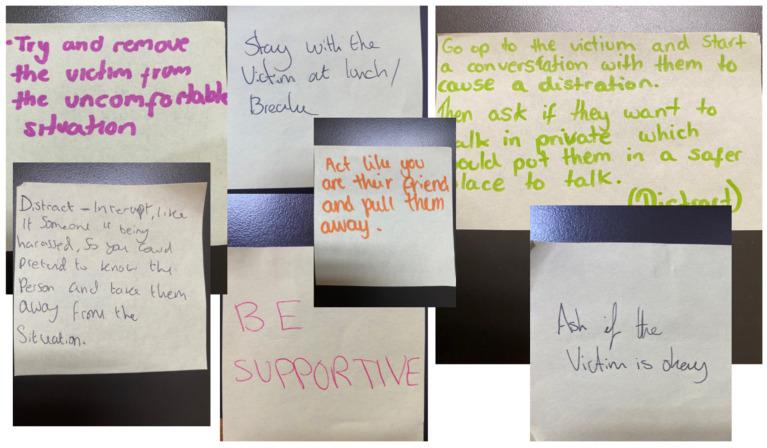 • Try and remove
the victim from
the uncomfortable
situation
Stay with the
Victim at lunch/
Break
Go op to the victium and start
a converstation with them to
cause a distration.
hen ask if they want to
alk in private which
ould put them in a safer
lace to talk.
(Distract)
Act like you
are their friend
and pull them
away.
Distract - Interupt, like
if someone is being
harassed, so you could
pretend to know the
Person and take them
away from the
Situation.
BE
SUPPORTIVE
Ask if the
Victim is okay